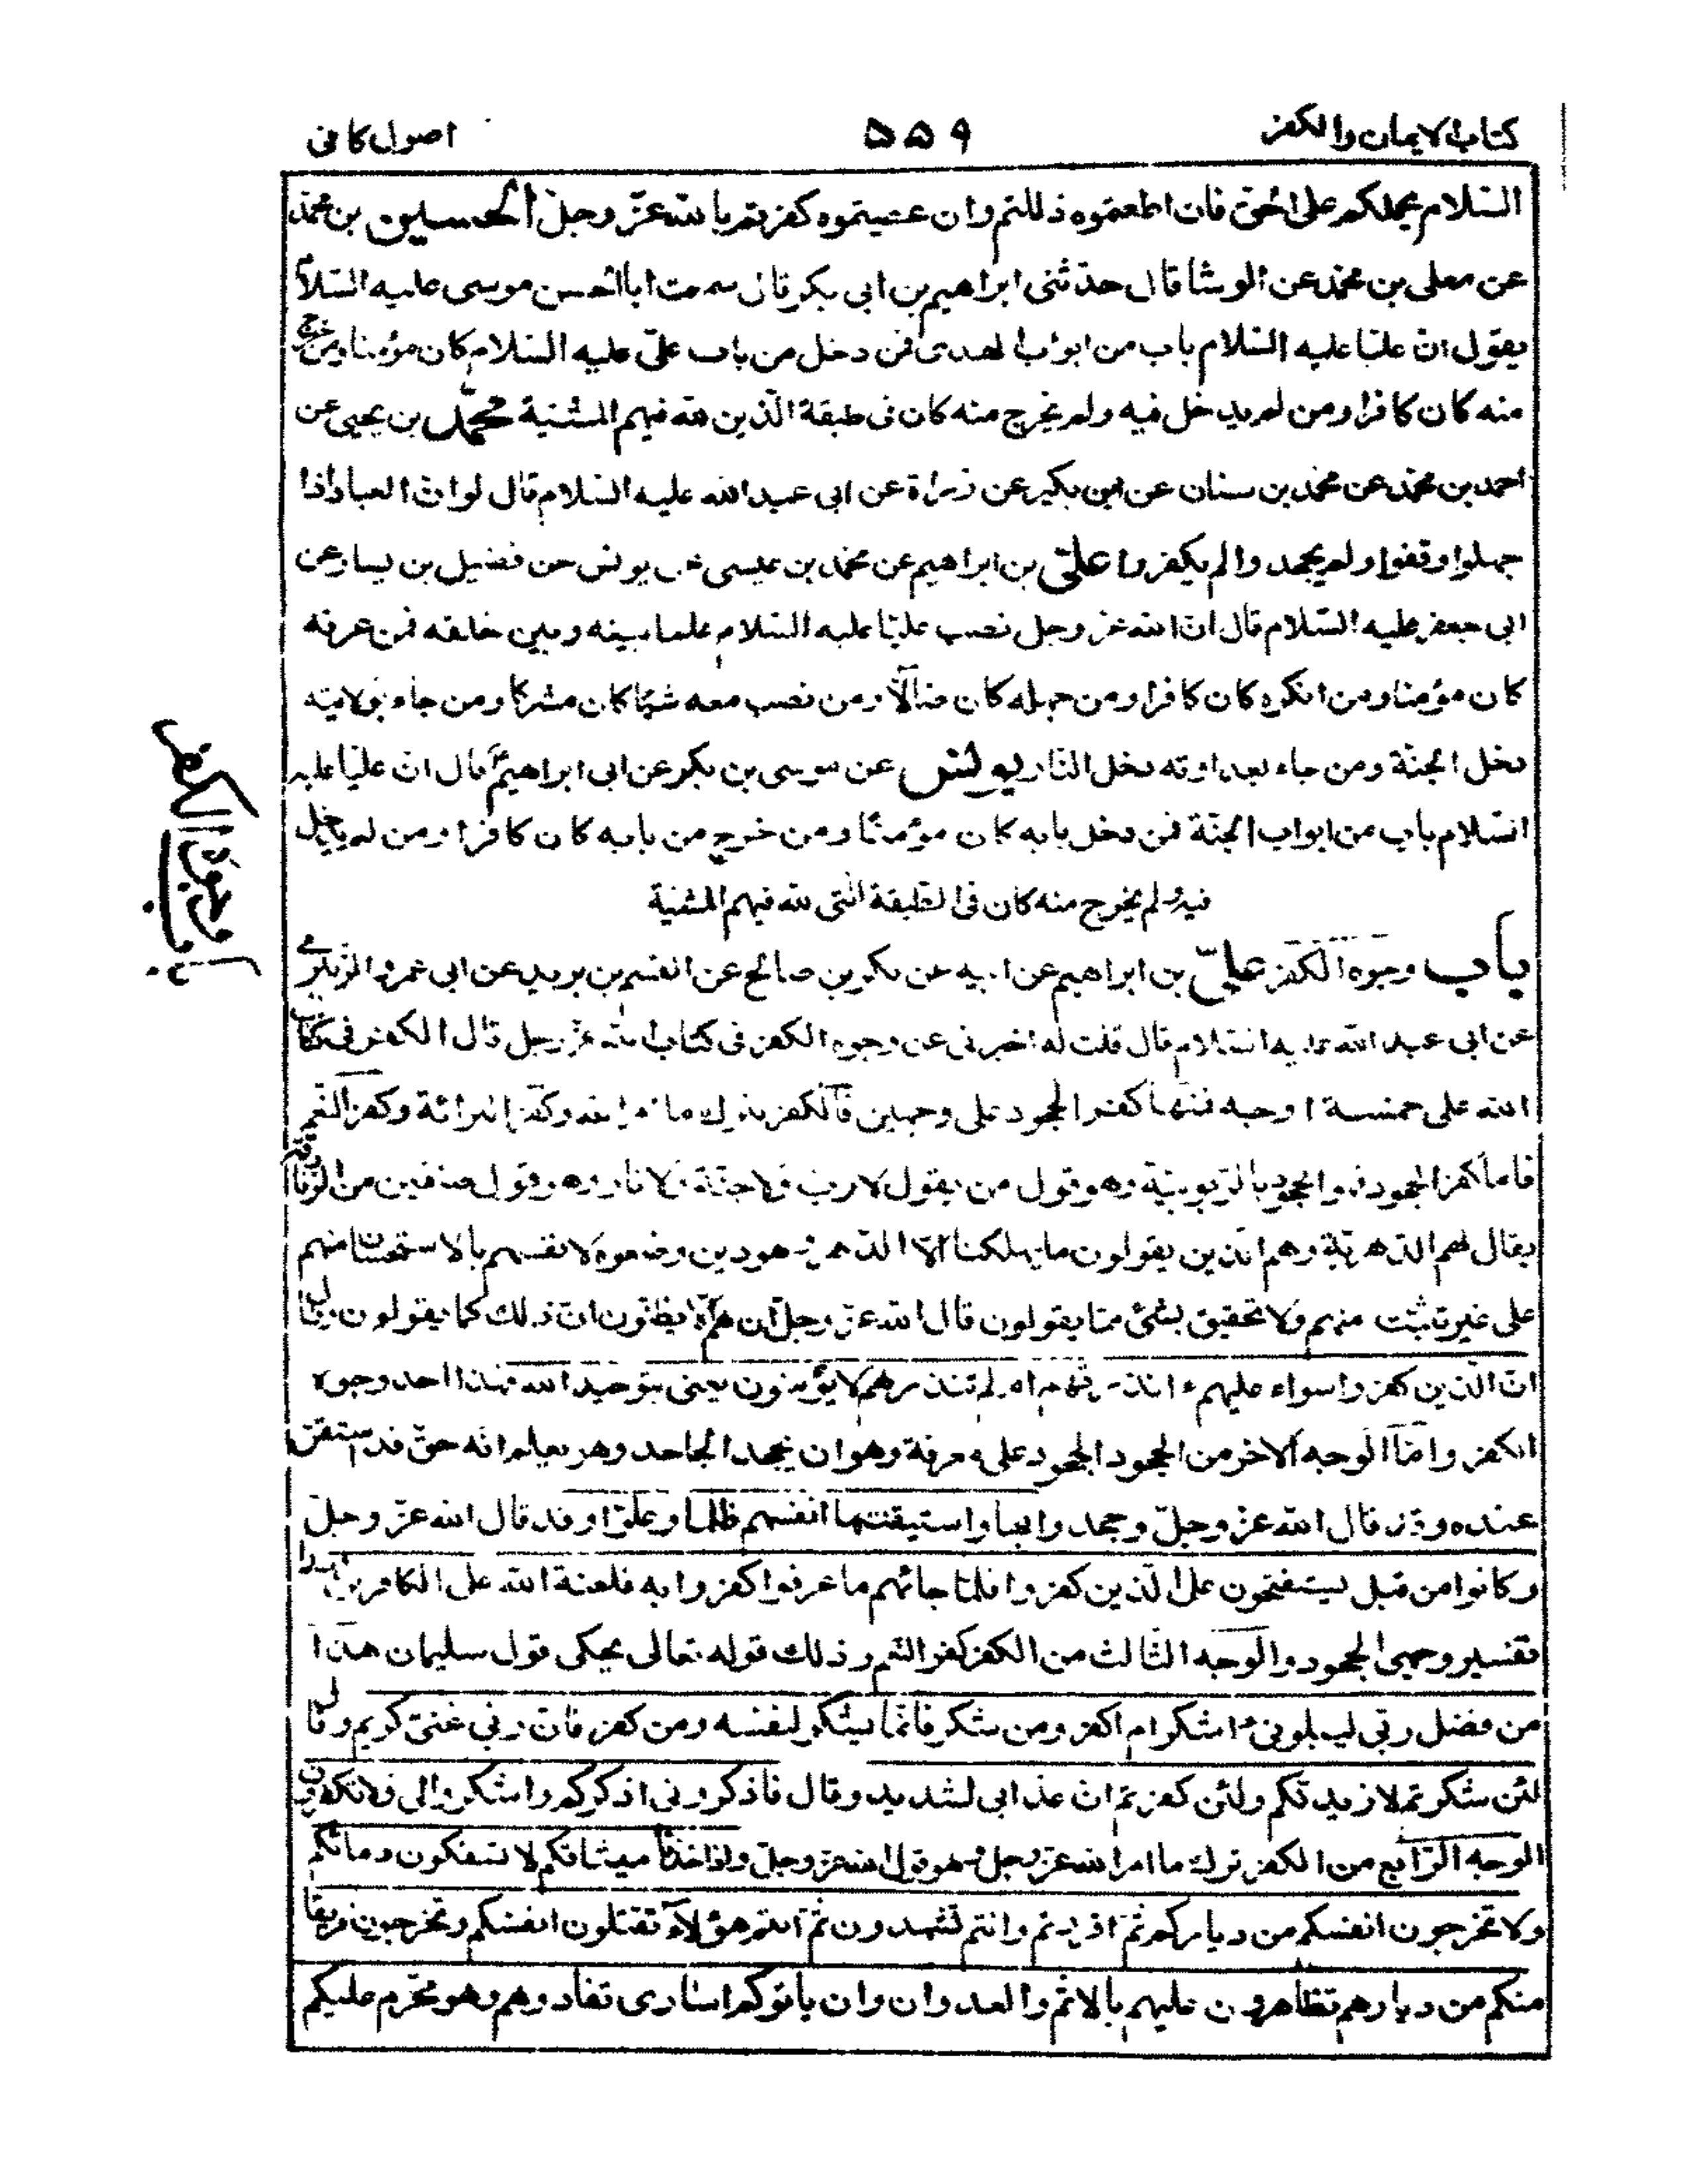 كتاب الايمان والكفر
۵۵۹
اصول كافی
السّلام يحملكم على الحقّ فان اطعتموه ذللتم وان عصيتموه كفرتم بالله عزّ وجلّ الحسين بن محمّد
عن معلى بن محمّد عن الوشا قال حدّثنى ابراهيم بن ابى بكر قال سمعت ابا الحسن موسى عليه السّلام
يقول انّ عليّا عليه السّلام باب من ابواب الهدى فمن دخل من باب علىّ عليه السّلام كان مؤمنا ومن خرج
منه كان كافرا ومن لم يدخل فيه ولم يخرج منه كان فى طبقة الّذين لله فيهم المشيّة محمّد بن يحيى عن
احمد بن محمّد عن محمّد بن سنان عن ابن بكير عن زرارة عن ابى عبد الله عليه السّلام قال لو انّ العباد اذا
جهلوا وقفوا ولم يجحدوا لم يكفروا علىّ بن ابراهيم عن محمّد بن عيسى عن يونس عن فضيل بن يسار عن
ابى جعفر عليه السّلام قال انّ الله عزّ وجل نصب عليّا عليه السّلام علما بينه وبين خلقه فمن عرفه
كان مؤمنا ومن انكره كان كافرا ومن جهله كان ضالّا ومن نصب معه شيئا كان مشركا ومن جاء بولايته
دخل الجنّة ومن جاء بعداوته دخل النّار يونس عن موسى بن بكر عن ابى ابراهيم قال انّ عليّا عليه
السّلام باب من ابواب الجنّة فمن دخل بابه كان مؤمنا ومن خرج من بابه كان كافرا ومن لم يدخل
فيه ولم يخرج منه كان فى الطّبقة الّتى لله فيهم المشيّة
باب وجوه الكفر علىّ بن ابراهيم عن ابيه عن بكر بن صالح عن القسم بن بريد عن ابى عمرو الزّبيرى
عن ابى عبد الله عليه السّلام قال قلت له اخبرنى عن وجوه الكفر فى كتاب الله عزّ وجل قال الكفر فى كتاب
الله على خمسة اوجه فمنها كفر الجحود على وجهين فالكفر بترك ما امر الله وكفر البرائة وكفر النّعم
فاما كفر الجحود فهو الجحود بالرّبوبيّة وهو قول من يقول لا ربّ ولا جنّة ولا نار وهو قول صنفين من الزّنادقة
يقال لهم الدّهريّة وهم الّذين يقولون ما يهلكنا الّا الدّهر وهو دين وضعوه لانفسهم بالاستحسان منهم
على غير تثبّت منهم ولا تحقيق بشئ ممّا يقولون قال الله عزّ وجلّ ان هم الّا يظنّون انّ ذلك كما يقولون وقال
انّ الّذين كفروا سواء عليهم ءانذرتهم ام لم تنذرهم لا يؤمنون يعنى بتوحيد الله فهذا احد وجوه
الكفر وامّا الوجه الآخر من الجحود الجحود على معرفة وهو ان يجحد الجاحد وهو يعلم انّه حقّ قد استقرّ
عنده وقد قال الله عزّ وجلّ وجحدوا بها واستيقنتها انفسهم ظلما وعلوّا وقد قال الله عزّ وجلّ
وكانوا من قبل يستفتحون على الّذين كفروا فلمّا جائهم ما عرفوا كفروا به فلعنة الله على الكافرين فهذا
تفسير وجهى الجحود والوجه الثّالث من الكفر كفر النّعم وذلك قوله تعالى يحكى قول سليمان هذا
من فضل ربّى ليبلونى ءاشكر ام اكفر ومن شكر فانّما يشكر لنفسه ومن كفر فانّ ربّى غنىّ كريم وقال
لئن شكرتم لازيدنّكم ولئن كفرتم انّ عذابى لشديد وقال فاذكرونى اذكركم واشكروا لى ولا تكفرون
الوجه الرّابع من الكفر ترك ما امر الله عزّ وجلّ به وهو قول الله عزّ وجلّ واذ اخذنا ميثاقكم لا تسفكون دمائكم
ولا تخرجون انفسكم من دياركم ثمّ اقررتم وانتم تشهدون ثمّ انتم هؤلاء تقتلون انفسكم وتخرجون فريقا
منكم من ديارهم تظاهرون عليهم بالاثم والعدوان وان ياتوكم اسارى تفادوهم وهو محرّم عليكم
باب وجوه الكفر